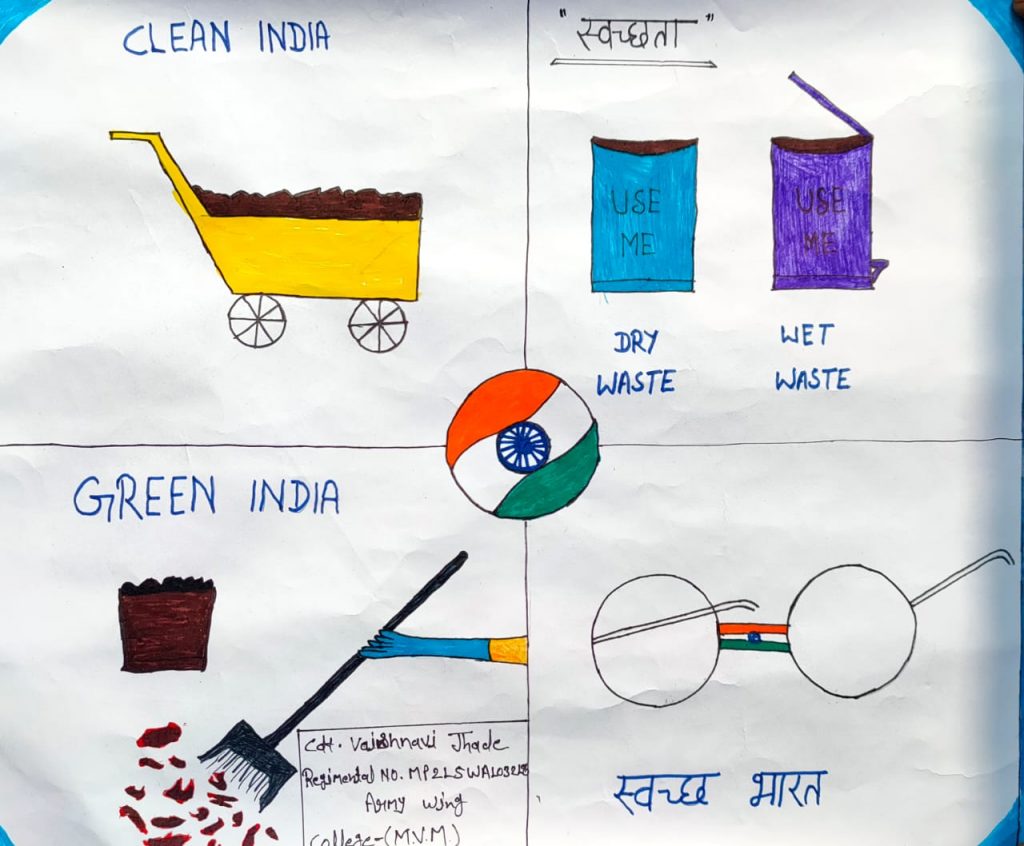 CLEAN INDIA
"स्वच्छता"
USE
ME
USE
ME
DRY
WASTE
WET
WASTE
GREEN INDIA
Cdt. Vaishnavi Thade
Regimental NO.
Army wing
College-(M.V.M.)
स्वच्छ भारत